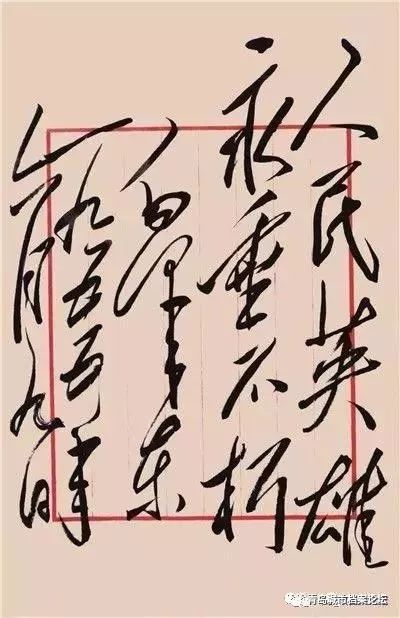 人民英雄
永垂不朽
毛泽东
一九五五年
六月九日
青岛城市档案论坛